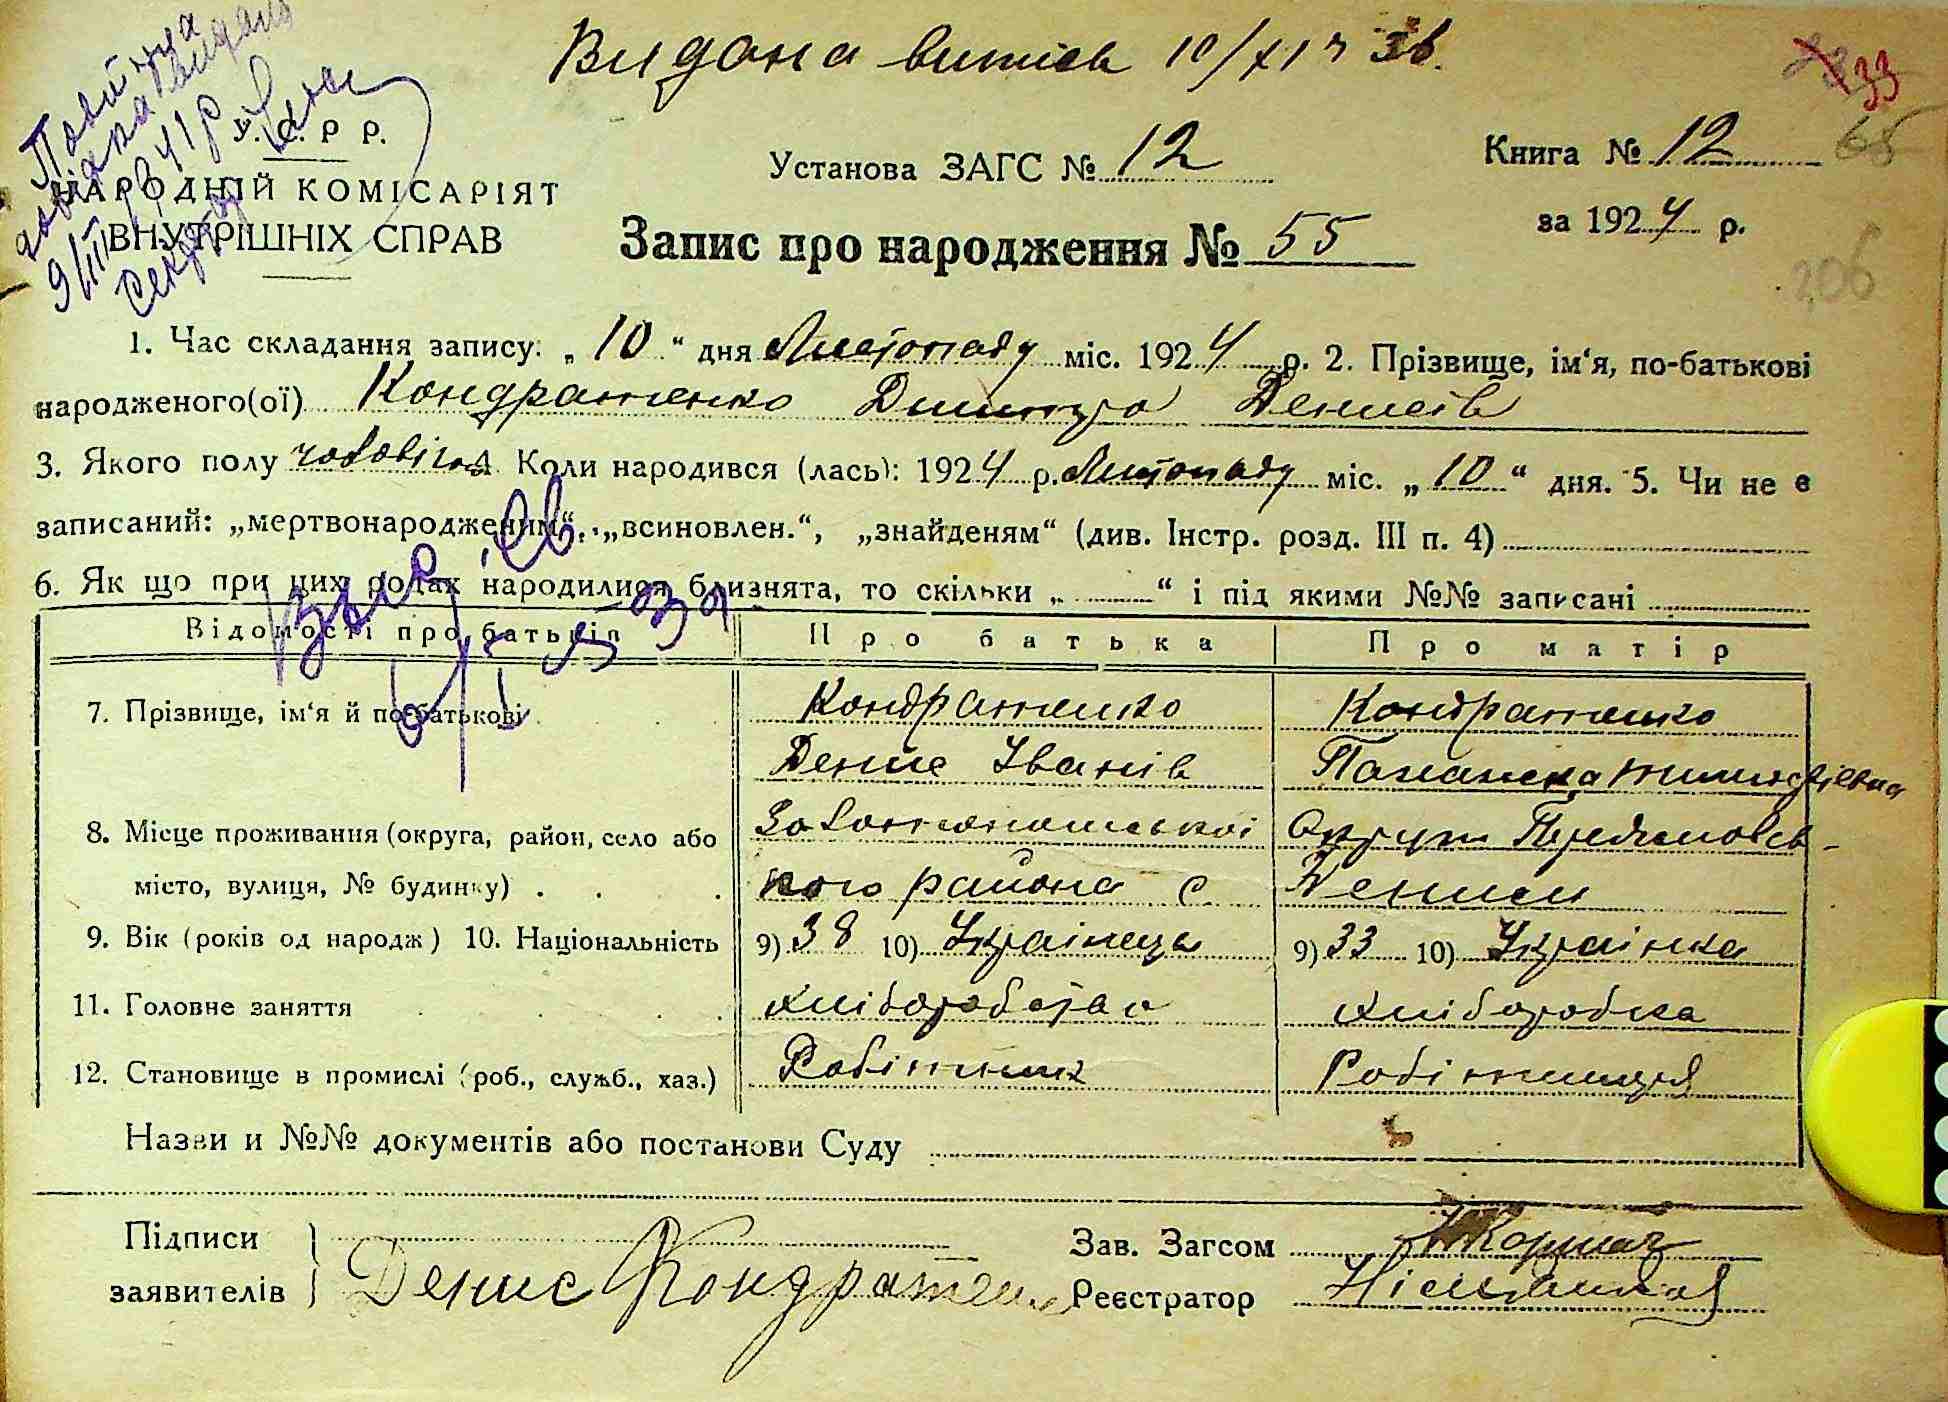 Видана витісь 10/XI 36.
33
68
206
У. С. Р Р.
НАРОДНІЙ КОМІСАРІЯТ
ВНУТРІШНІХ СПРАВ
Установа ЗАГС № 12
Книга № 12
за 1924 р.
Запис про народження № 55
1. Час складання запису: „ 10 “ дня Листопаду міс. 1924 р. 2. Прізвище, ім‘я, по-батькові
народженого(ої) Кондратенко Дмитро Денисів
3. Якого полу чоловічого Коли народився (лась): 1924 р. Листопаду міс. „ 10 “ дня. 5. Чи не є
записаний: „мертвонародженим“, „всиновлен.“, „знайденям“ (див. Інстр. розд. III п. 4)
6. Як що при цих родах народилися близнята, то скільки „ “ і під якими №№ записані
Відомості про батьків Про батька Про матір
7. Прізвище, ім‘я й по-батькові Кондратенко Кондратенко
Денис Іванів
8. Місце проживання (округа, район, село або Золотоношської Округи
місто, вулиця, № будинку) кого района с. Дениси
9. Вік (років од народж) 10. Національність 9) 38 10) Українець 9) 33 10) Українка
11. Головне заняття хліборобство хліборобка
12. Становище в промислі (роб., служб., хаз.) Робітник Робітниця
Назви и №№ документів або постанови Суду
Підписи
заявителів
Денис Кондратенко
Зав. Загсом
Реєстратор